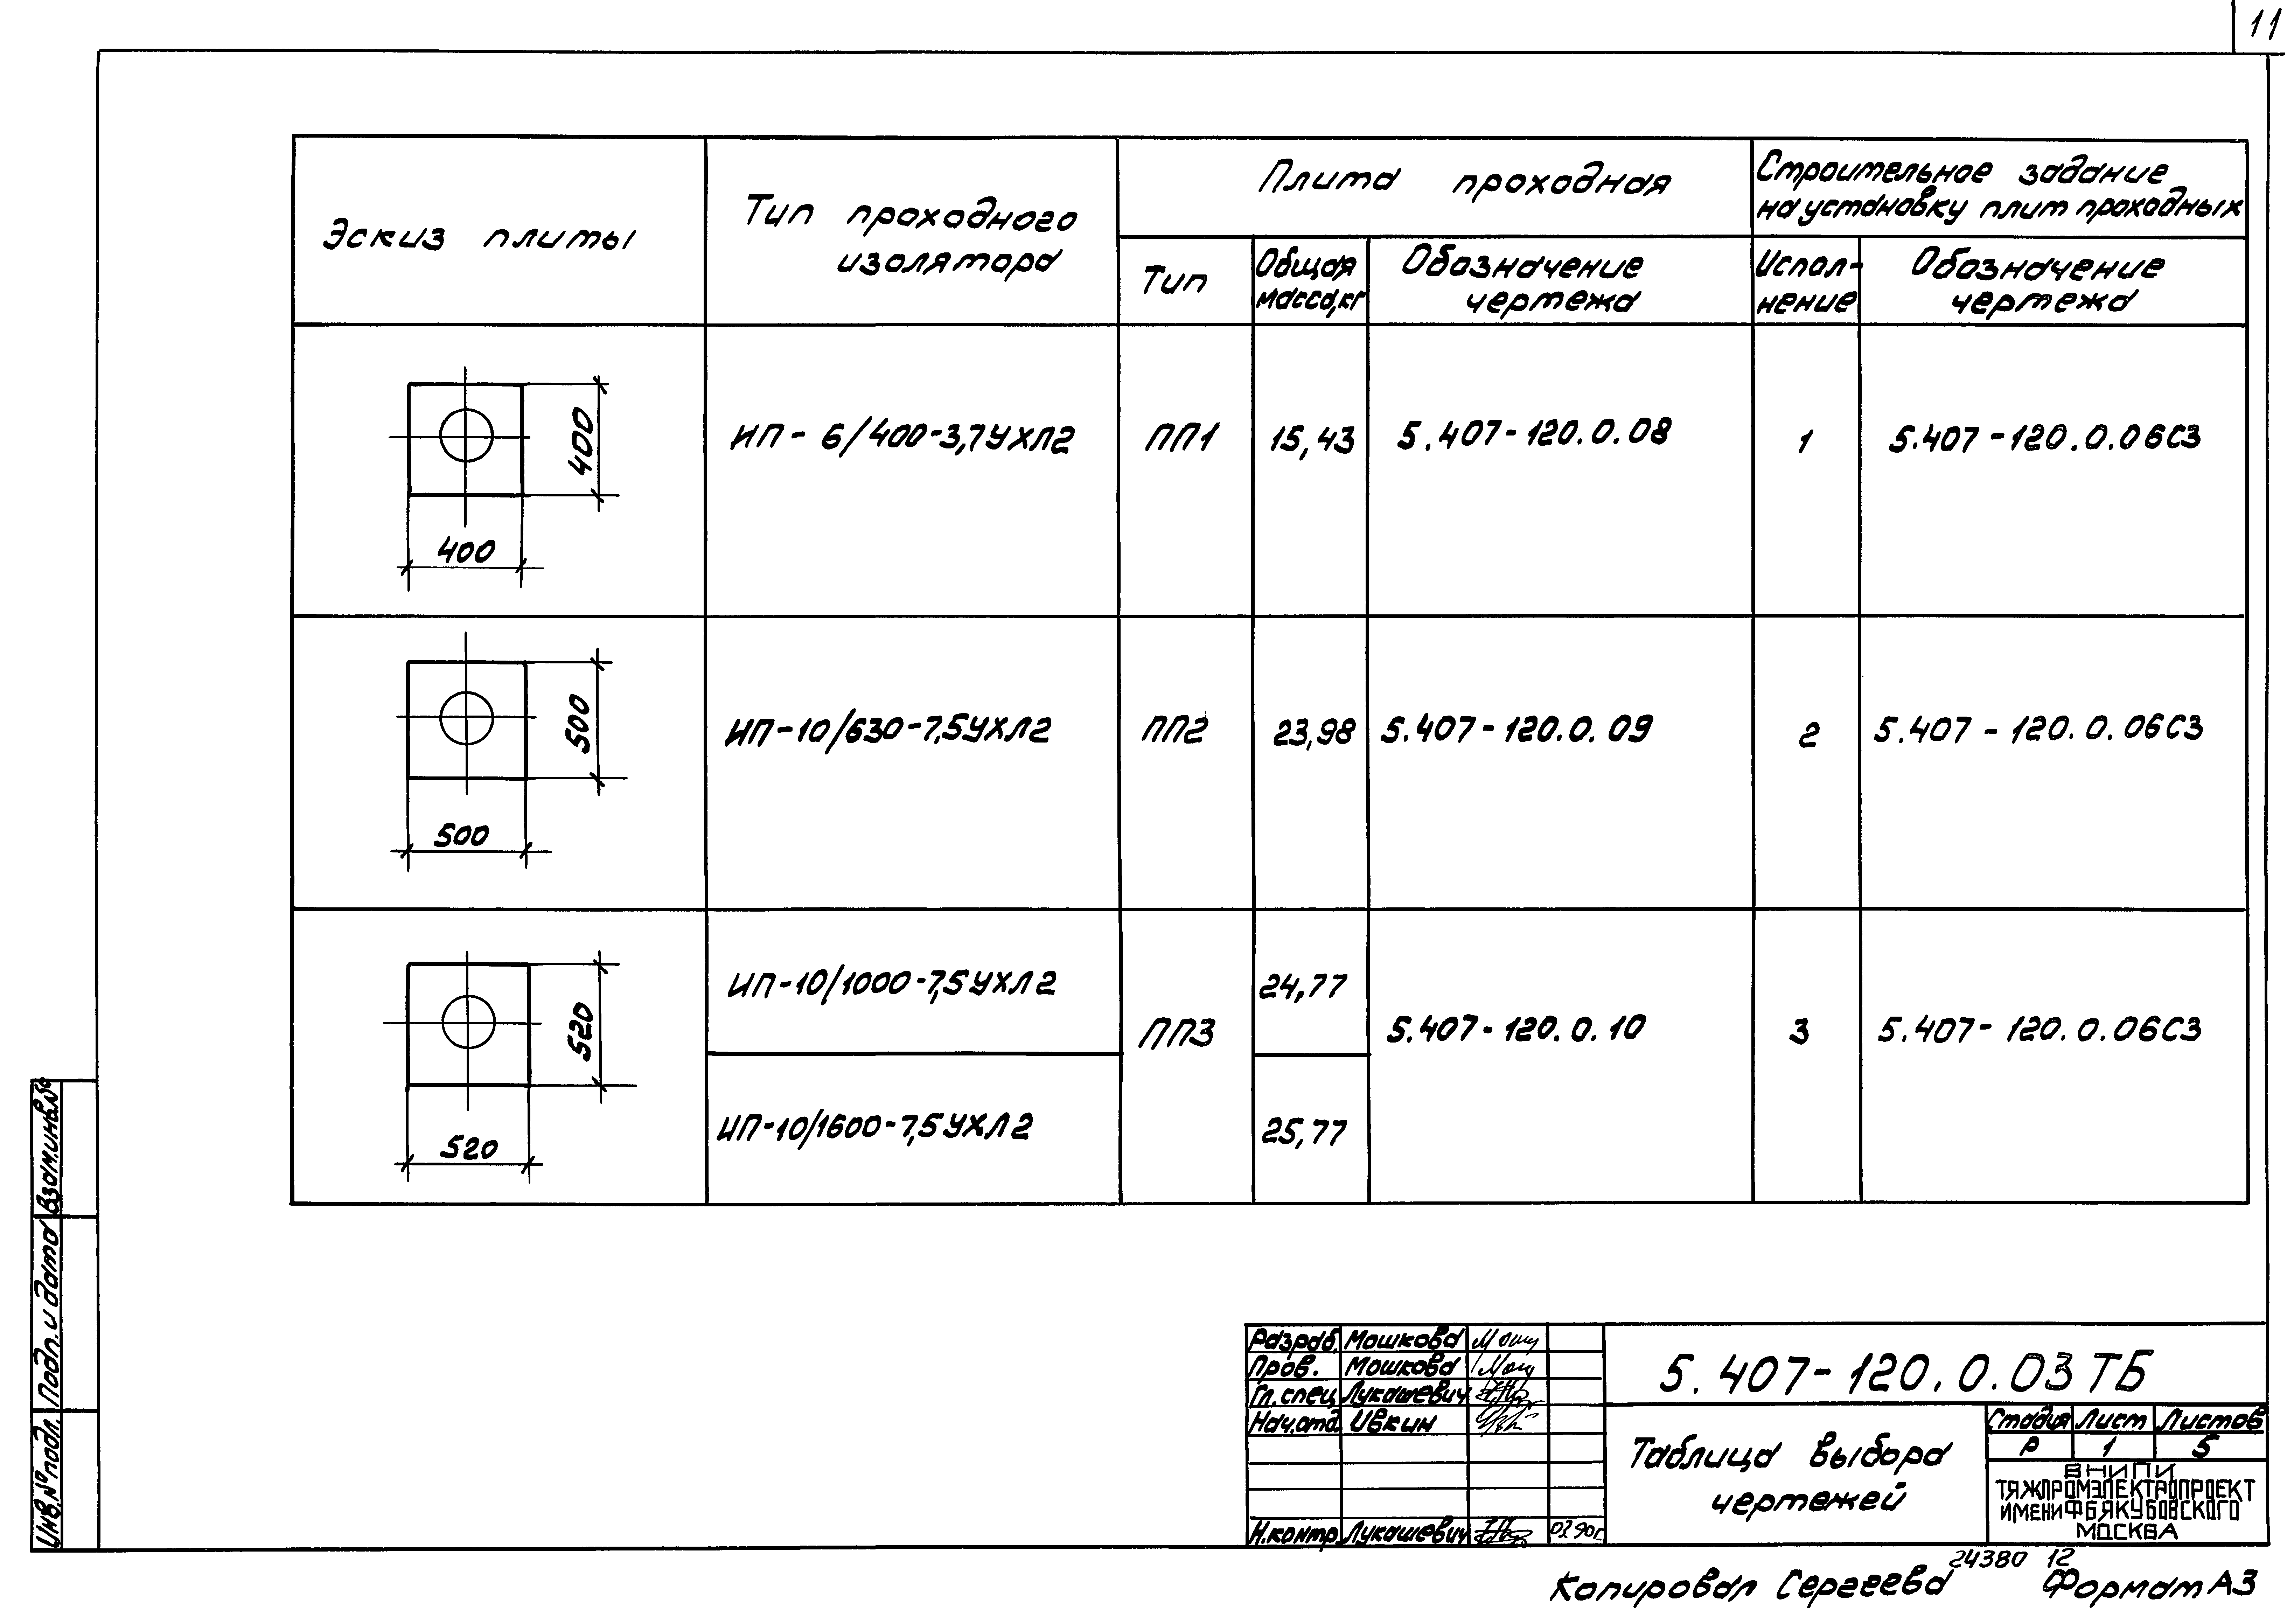 11
Эскиз плиты
Тип проходного
изолятора
Плита проходная
Строительное задание
на установку плит проходных
Тип
Общая
масса,кг
Обозначение
чертежа
Испол-
нение
Обозначение
чертежа
400
400
ИП- 6/400-3,7УХЛ2
ПП1
15,43
5.407-120.0.08
1
5.407-120.0.06СЗ
500
500
ИП-10/630-7,5УХЛ2
ПП2
23,98
5.407-120.0.09
2
5.407-120.0.06СЗ
520
520
ИП-10/1000-7,5УХЛ2
24,77
ПП3
5.407-120.0.10
3
5.407-120.0.06СЗ
ИП-10/1600-7,5УХЛ2
25,77
Взам.инв.№
Подп. и дата
Инв.№ подл.
Разраб. Мошкова
Пров. Мошкова
Гл.спец. Лукашевич
Нач.отд. Ивкин
Н.контр. Лукашевич 02.90г.
5.407-120.0.03ТБ
Таблица выбора
чертежей
Стадия Лист Листов
Р 1 5
ВНИПИ
ТЯЖПРОМЭЛЕКТРОПРОЕКТ
ИМЕНИ Ф.Б.ЯКУБОВСКОГО
МОСКВА
24380 12
Копировал Сергеева Формат А3